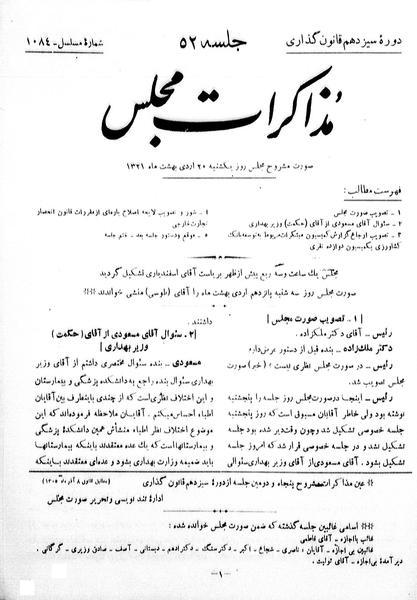 دورهٔ سیزدهم قانون گذاری
جلسه ۵۲
شمارهٔ مسلسل - ۱۰۸۴
مذاکرات مجلس
صورت مشروح مجلس روز یکشنبه ۲۰ اردی بهشت ماه ۱۳۲۱
فهرست مطالب:
۱ - تصویب صورت مجلس
۲ - سئوال آقای مسعودی از آقای (حکمت) وزیر بهداری
۳ - تصویب ارجاع گزارش کمیسیون مبتکرات مربوط به توسعه بانک کشاورزی بکمیسیون دوازده نفری
۴ - شور و تصویب لایحه اصلاح پاره‌ای از مقررات قانون انحصار تجارت خارجی
۵ - موقع و دستور جلسه بعد - ختم جلسه
مجلس یک ساعت و سه ربع پیش از ظهر بریاست آقای اسفندیاری تشکیل گردید
صورت مجلس روز سه شنبه پانزدهم اردی بهشت ماه را آقای (طوسی) منشی خواندند
[۱ - تصویب صورت مجلس]
رئیس - آقای دکتر ملک‌زاده.
دکتر ملک‌زاده - بنده قبل از دستور عرض دارم
رئیس - در صورت مجلس نظری نیست؟ (خیر) صورت
مجلس تصویب شد.
رئیس - اینجا در صورت مجلس روز جلسه را پنجشنبه
نوشته بود ولی خاطر آقایان مسبوق است که روز پنجشنبه
جلسه خصوصی تشکیل شد و چون وقت دیر شده بود جلسه
تشکیل نشد و در جلسه خصوصی قرار شد که امروز جلسه
تشکیل بشود، آقای مسعودی از آقای وزیر بهداری سئوالی
داشتند.
[۲ - سئوال آقای مسعودی از آقای (حکمت)
وزیر بهداری]
مسعودی - بنده سئوال مختصری داشتم از آقای وزیر
بهداری سئوال بنده راجع به دانشکده پزشکی و بیمارستان
و این اختلاف نظری است که از چندی باینطرف بین آقایان
اطباء احساس میکنم. آقایان ملاحظه فرموده‌اند که این
موضوع اختلاف نظر اطباء منشأش همین دانشکدهٔ پزشکی
و بیمارستانها است که یک عده معتقدند باینکه بیمارستانها
باید ضمیمه وزارت بهداری بشود و عده‌ای معتقدند باینکه
عین مذاکرات مشروح پنجاه و دومین جلسه از دورهٔ سیزدهم قانون گذاری
(مطابق قانون ۸ آذر ماه ۱۳۰۵)
ادارهٔ تند نویسی و تحریر صورت مجلس
اسامی غائبین جلسه گذشته که ضمن صورت مجلس خوانده شده:
غائب بااجازه - آقای طباطبائی
غائبین بی اجازه - آقایان: ناصری - شجاع - اکبر - دکتر سنگ - دکتر ادهم - دبستانی - آصف - صادق وزیری - گرگانی.
دیر آمده بی‌اجازه - آقای تولیت.
- ۱ -